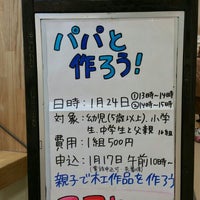 パパと
作ろう!
日時:1月24日 ①13時〜14時
②14時〜15時
対象:幼児(5歳以上)、小学
生、中学生と父親 10組
費用:1組500円
申込:1月17日 午前10時〜
親子で木工作品を作ろう